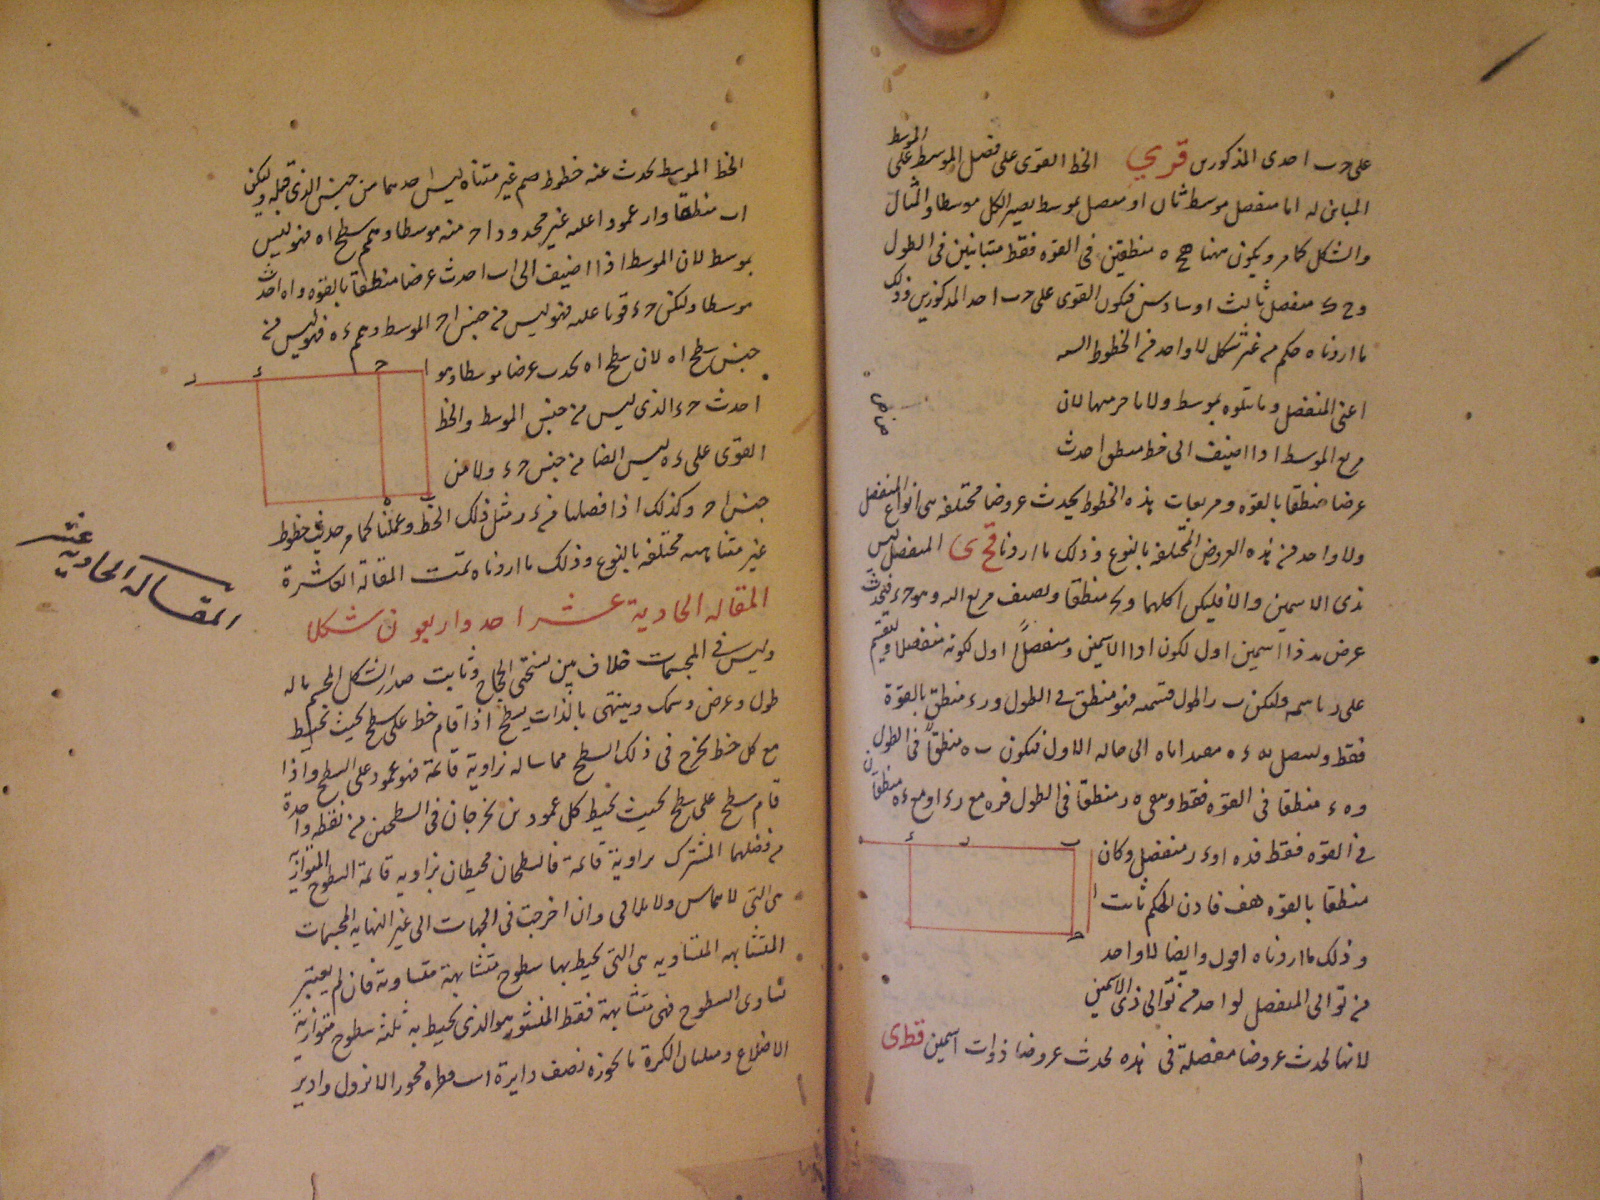 على ح ب احدى المذكورين قري الخط القوى على فضل الموسط على الموسط
المباين له اما منفصل موسط ثان او متصل بموسط يصير الكل موسطا والمثال
والشكل كما مر ويكون ههنا ح ه منطقين فى القوه فقط متباينين فى الطول
و ح ك منفصل ثالث او سادس فيكون القوى على ح ب احد المذكورين وذلك
ما اردناه حكم من غير شكل لا واحد من الخطوط الستة
اعنى المنفصل وما يتلوه بموسط ولا باخر منها لان
مربع الموسط اذا اضيف الى خط منطق احدث
عرضا منطقا بالقوه ومربعات هذه الخطوط يحدث عروضا مختلفه هى انواع المنفصل
ولا واحد من هذه العروض المختلفه بالنوع وذلك ما اردنا قحى المنفصل ليس
بذى الاسمين والا فليكن ا كلهما و ح منطقا ونضيف مربع ا اليه وهو ح ء فيحدث
عرض ب د ذا اسمين اول لكون ا ذا الاسمين ومنفصلا اول لكونه منفصلا وليقسم
على ر باسميه وليكن ب ر اطول قسميه فهو منطق فى الطول و ر ء منطق بالقوة
فقط وليتصل به ء ه معيدا اياه الى حاله الاول فيكون ب ه منطقا فى الطول
و ه ء منطقا فى القوه فقط ويبقى ه ر منطقا فى الطول فر ه مع ر ء او مع ء ه منطقان
فى القوه فقط فد ه او ء ر منفصل وكان
منطقا بالقوه هف فاذن الحكم ثابت
وذلك ما اردناه اقول وايضا لا واحد
من توالى المنفصل لواحد من توالى ذى الاسمين
لانها تحدث عروضا منفصلة فى هذه تحدث عروضا ذوات اسمين قطى
الخط الموسط يحدث عنه خطوط صم غير متناه ليس احدها من جنس الذى قبله وليكن
ا ب منطقا و ا ر عمودا عليه غير محدود و ا ح منه موسطا ويتمم سطح ا ه فهو ليس
بموسط لان الموسط اذا اضيف الى ا ب احدث عرضا منطقا بالقوه و ا ه احدث
موسطا وليكن ح ء قويا عليه فهو ليس من جنس ا ح الموسط ويتمم ء ه فهو ليس من
جنس سطح ا ه لان سطح ا ه يحدث عرضا موسطا وهو
احدث ح ء الذى ليس من جنس الموسط والخط
القوى على ء ه ليس ايضا من جنس ح ء ولا من
جنس ا ح وكذلك اذا فصلنا من ء ر مثل ذلك الخط وعملنا كما مر حدث خطوط
غير متناهيه مختلفه بالنوع وذلك ما اردناه تمت المقالة العاشرة
المقاله الحادية عشر احد واربعون شكلا
وليس فى المجسمات خلاف بين نسختى الحجاج وثابت صدر الشكل المجسم ما له
طول وعرض وسمك وينتهى بالذات بسطح اذا قام خط على سطح بحيث يحيط
مع كل خط يخرج فى ذلك السطح مماسا له بزاوية قائمة فهو عمود على السطح واذا
قام سطح على سطح بحيث يحيط كل عمودين يخرجان فى السطحين من نقطه واحدة
من فصلهما المشترك بزاوية قائمة فالسطحان محيطان بزاويه قائمة السطوح المتوازيه
هى التى لا تتماس ولا تلاقى وان اخرجت فى الجهات الى غير النهايه المجسمات
المتشابهه المتساويه هى التى يحيط بها سطوح متشابهة متساوية فان لم يعتبر
تساوى السطوح فهى متشابهة فقط المنشور هو الذى يحيط به ثلثه سطوح متوازية
الاضلاع ومثلثان الكرة ما يحوزه نصف دايرة اثبت قطره محورا لا يزول وادير
المقالة الحادية عشر